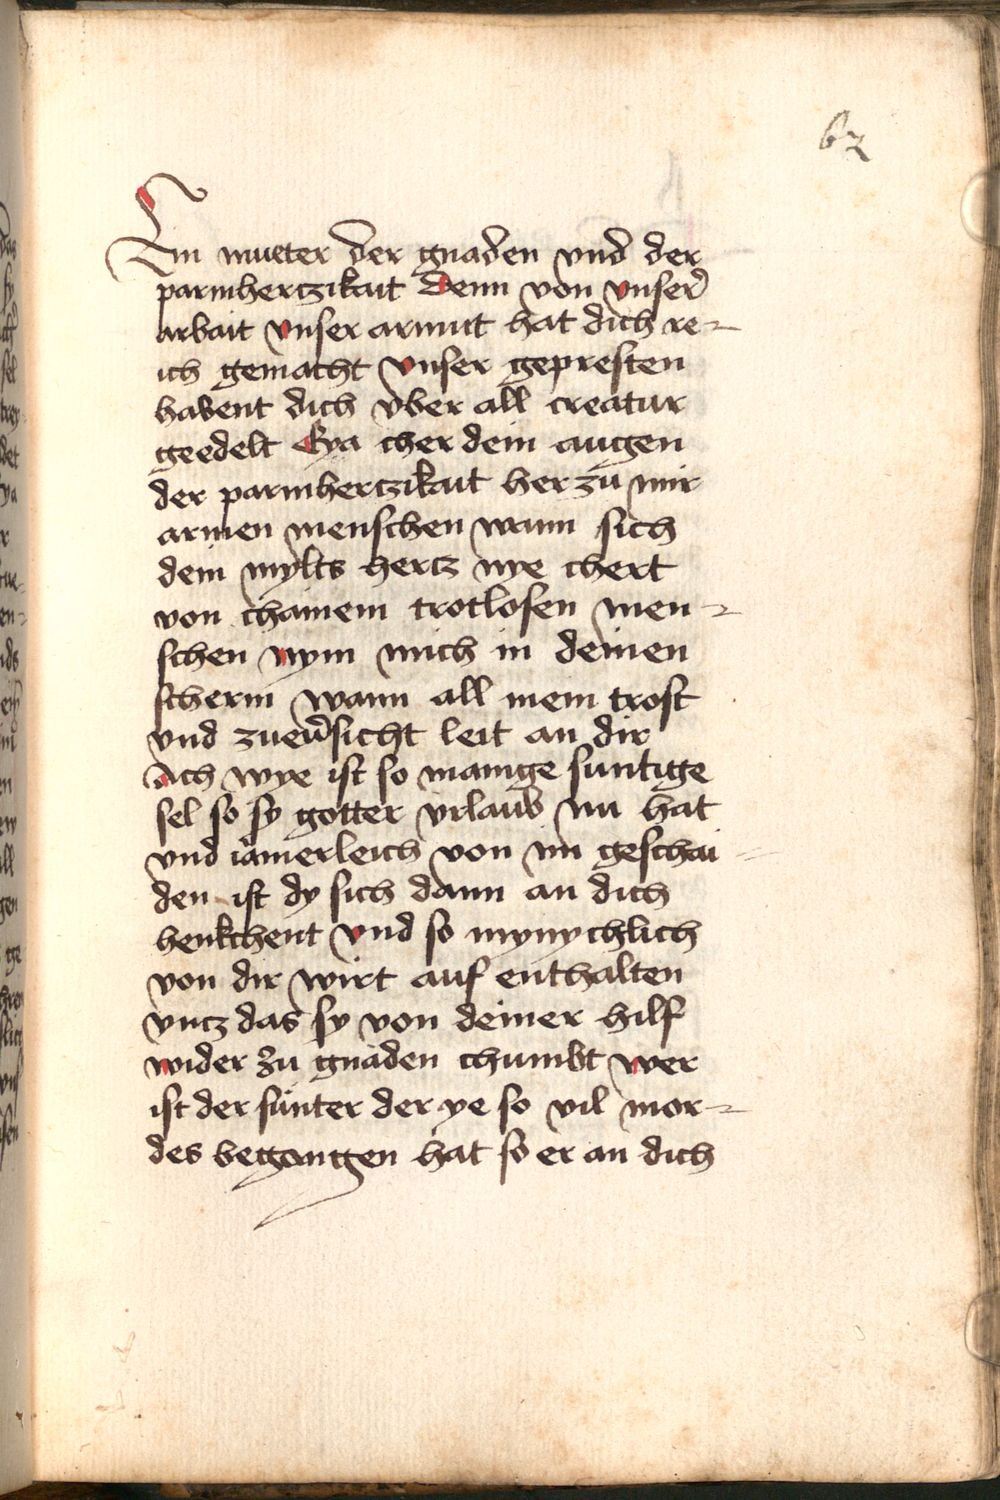 62
Ein mueter der gnaden vnd der
parmhertzikait Denn von vnser
arbait vnser armut hat dich re-
ich gemacht vnser gepresten
habent dich vber all creatur
geedelt Eya cher dein augen
der parmhertzikait her zu mir
armen menschen wann sich
dein mylts hertz nye chert
von chainem trotlosen men-
schen nym mich in deinen
scherm wann all mein trost
vnd zueũsicht leit an dir
Ach wye ist so manige suntige
sel so sy gotter vrlaub nu hat
vnd iamerleich von im geschai
den ist dy sich dann an dich
henkchent vnd so mynychlich
von dir wirt auf enthalten
vncz das sy von deiner hilf
wider zu gnaden chumbt wer
ist der sünter der ye so vil mor-
des begangen hat so er an dich